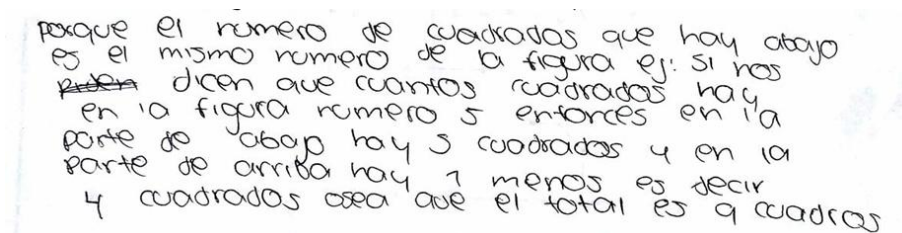 porque el numero de cuadrados que hay abajo
es el mismo numero de la figura ej: si nos
piden dicen que cuantos cuadrados hay
en la figura numero 5 entonces en la
parte de abajo hay 5 cuadrados y en la
parte de arriba hay 1 menos es decir
4 cuadrados osea que el total es 9 cuadros